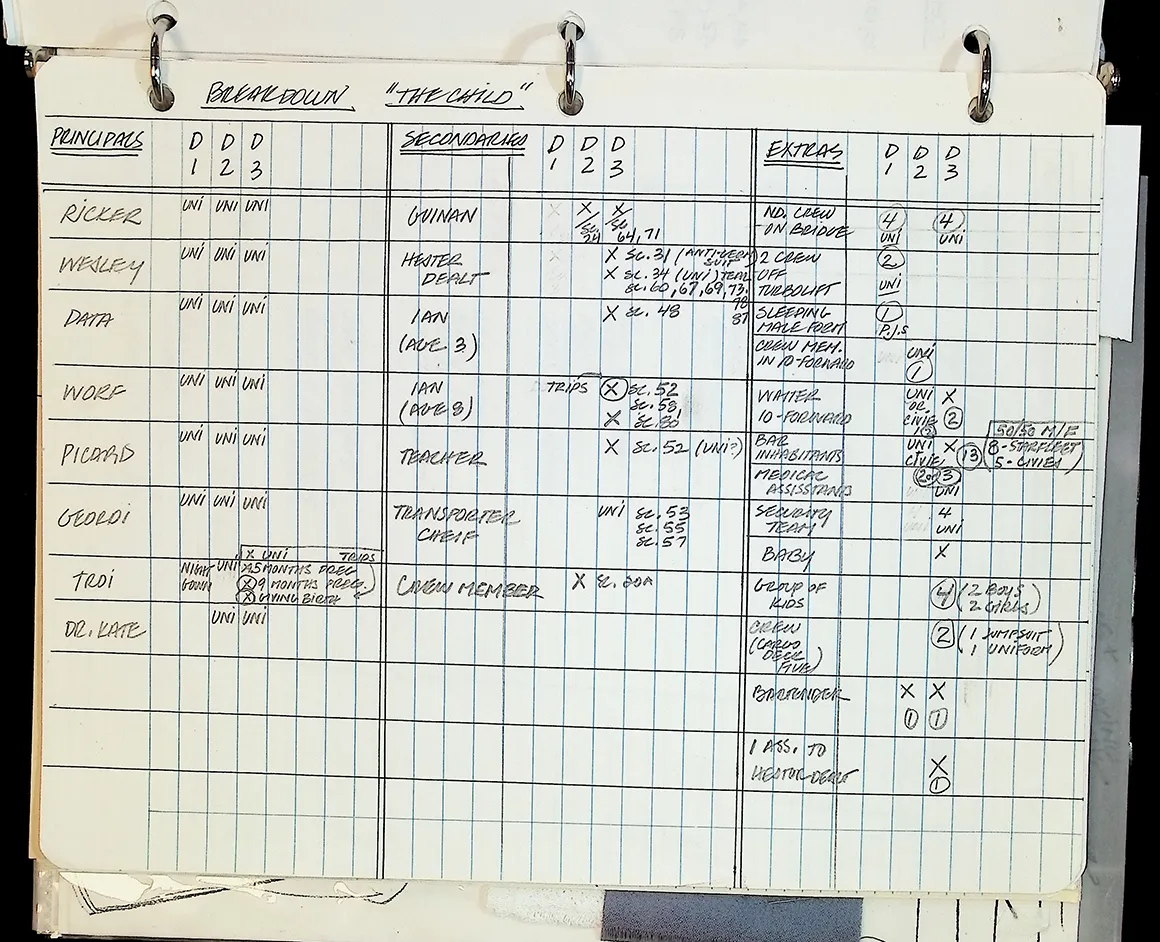 BREAKDOWN "THE CHILD"
PRINCIPALS D 1 D 2 D 3
RICKER UNI UNI UNI
WESLEY UNI UNI UNI
DATA UNI UNI UNI
WORF UNI UNI UNI
PICARD UNI UNI UNI
GEORDI UNI UNI UNI
TROI NIGHT GOWN UNI X UNI TRIPS
X 5 MONTHS PREG.
X 9 MONTHS PREG.
X GIVING BIRTH
DR. KATE UNI UNI
SECONDARIES D 1 D 2 D 3
GUINAN X X
SC. 24 SC 64, 71
HESTER X SC. 31 (ANTI-GERM SUIT)
DEALT X SC. 34 (UNI) TEAL
SC. 60, 67, 69, 73,
78
87
IAN X SC. 48
(AGE 3)
IAN TRIPS X SC. 52
(AGE 8) SC. 58,
X SC. 80
TEACHER X SC. 52 (UNI?)
TRANSPORTER UNI SC. 53
CHEIF SC. 55
SC. 57
CREW MEMBER X SC. 20A
EXTRAS D 1 D 2 D 3
ND. CREW 4 4
-ON BRIDGE UNI UNI
2 CREW 2
OFF
TURBOLIFT UNI
SLEEPING 1
MALE FORM P.J.S
CREW MEM. UNI
IN 10-FORWARD 1
WAITER UNI X
OR
10-FORWARD CIVIE 2
BAR UNI X 13
INHABITANTS CIVIE
50/50 M/F
8-STARFLEET
5-CIVIES
MEDICAL 2 OR 3
ASSISSTANTS UNI
SECURITY 4
TEAM UNI
BABY X
GROUP OF 4 (2 BOYS
KIDS 2 GIRLS)
CREW 2 (1 JUMPSUIT
(CARGO 1 UNIFORM)
DECK
FIVE)
BARTENDER X X
1 1
1 ASS. TO
HESTOR DEALT X
1